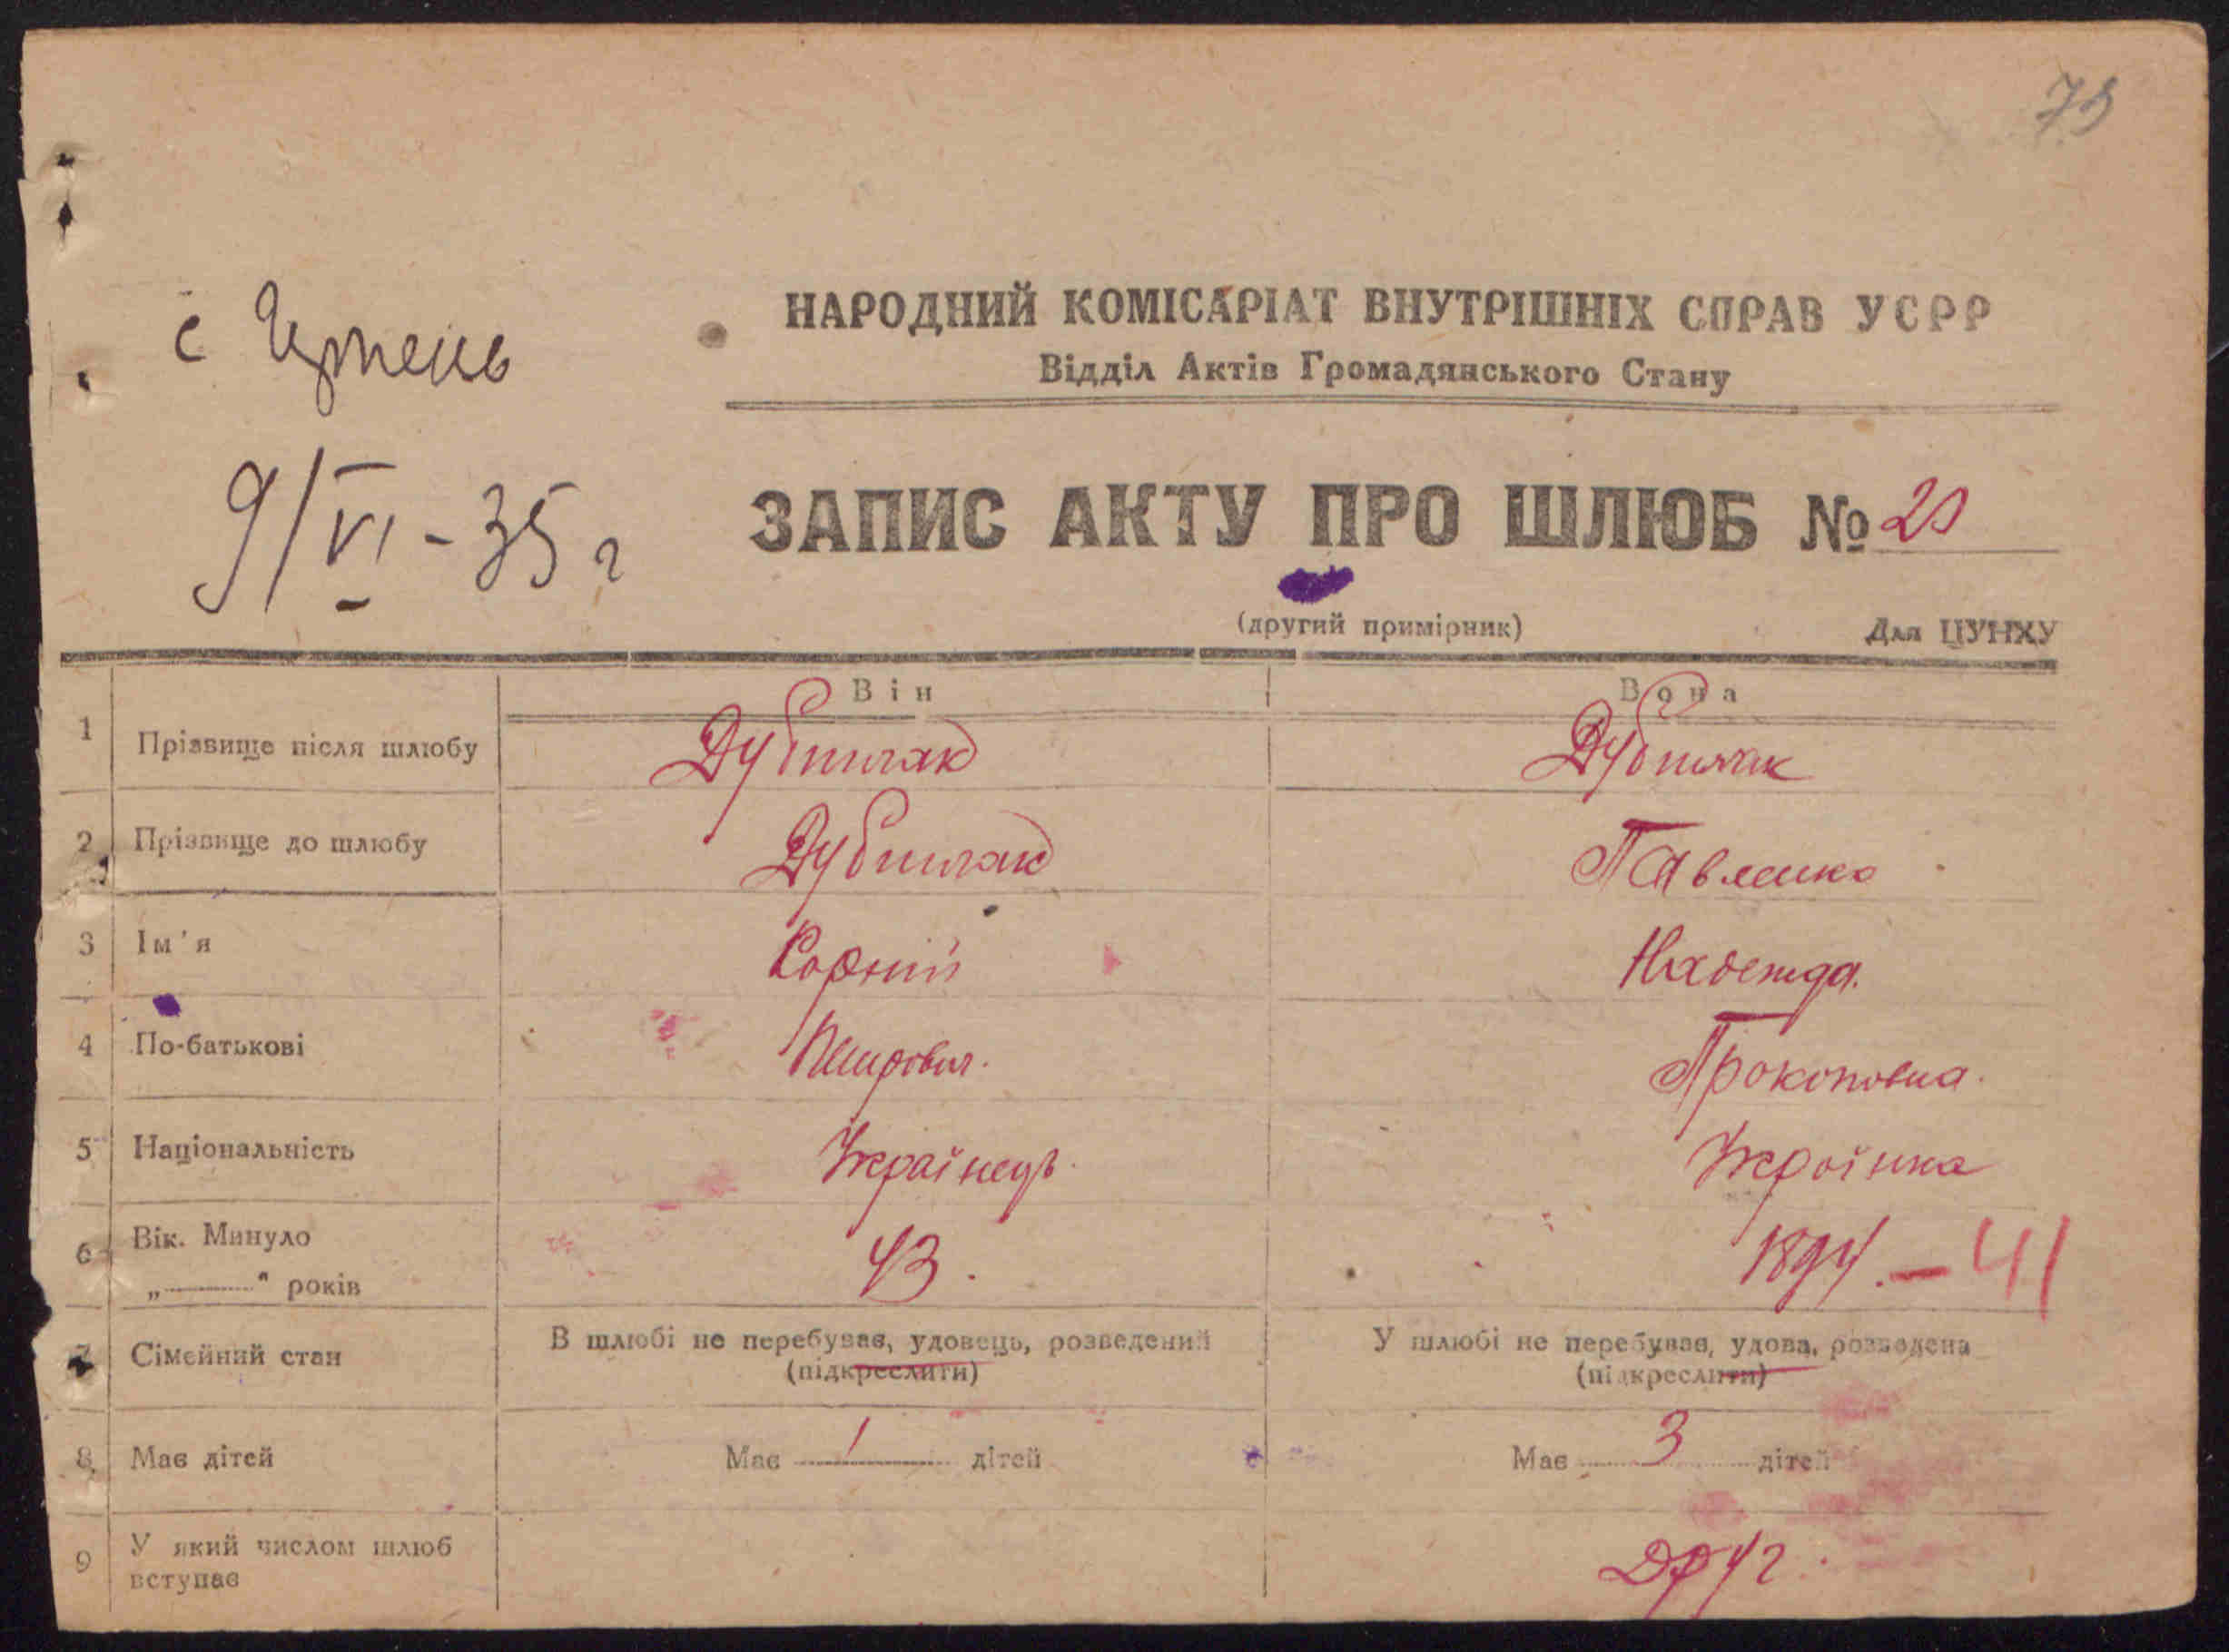 73
с Ирпень
НАРОДНИЙ КОМІСАРІАТ ВНУТРІШНІХ СПРАВ УСРР
Відділ Актів Громадянського Стану
9/VI - 35 г
ЗАПИС АКТУ ПРО ШЛЮБ № 20
(другий примірник) Для ЦУНХУ
Він Вона
1 Прізвище після шлюбу Дубиняк Дубиняк
2 Прізвище до шлюбу Дубиняк Павленко
3 Ім'я Корній Надежда.
4 По-батькові Петрович. Прокоповна.
5 Національність Українець. Українка
6 Вік. Минуло 43. 1894. - 41
„ “ років
7 Сімейний стан В шлюбі не перебував, удовець, розведений У шлюбі не перебував, удова, розведена
(підкреслити) (підкреслити)
8 Має дітей Має 1 дітей Має 3 дітей
9 У який числом шлюб Друг.
вступає